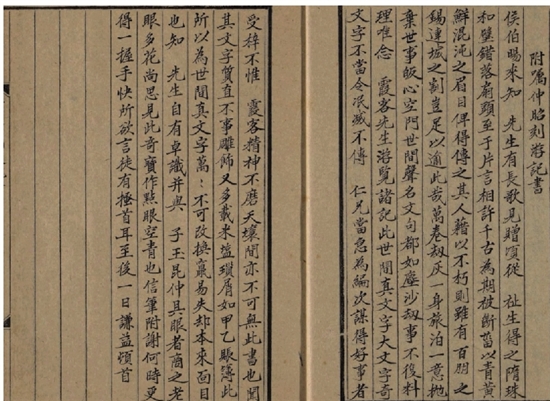 附属仲昭刻游記書
侯伯鳴來知 先生有長歌見贈頃從 祉生得之隋珠
和璧錯落蔀頭至于片言相許千古為期被斷菑以青黃
鮮混沌之眉目俾得傳之其人藉以不朽則雖有百朋之
錫連城之割豈足以適此哉萬卷刼灰一身旅泊一意抛
棄世事皈心空門世間聲名文句都如塵沙刼事不復料
理唯念 霞客先生游覽諸記此世間真文字大文字奇
文字不當令泯滅不傳 仁兄當急為編次謀得好事者
受梓不惟 霞客精神不磨天壤間亦不可無此書也聞
其文字質直不事雕飾又多載米鹽瑣屑如甲乙賬簿此
所以為世間真文字萬〻不可改換竄易失却本來面目
也知 先生自有卓識并與 子王昆仲具眼者商之老
眼多花尚思見此奇寶作點眼空青也信筆附謝何時更
得一握手快所欲言徒有極首耳至後一日謙益頓首